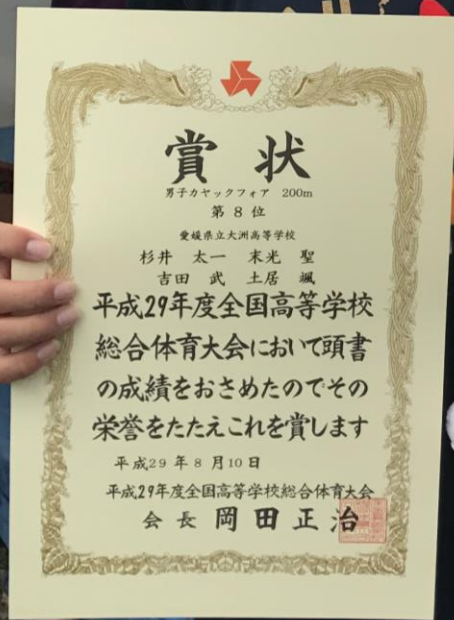 賞状
男子カヤックフォア 200m
第8位
愛媛県立大洲高等学校
杉井 太一 末光 聖
吉田 武 土居 颯
平成29年度全国高等学校
総合体育大会において頭書
の成績をおさめたのでその
栄誉をたたえこれを賞します
平成29年8月10日
平成29年度全国高等学校総合体育大会
会長 岡田正治